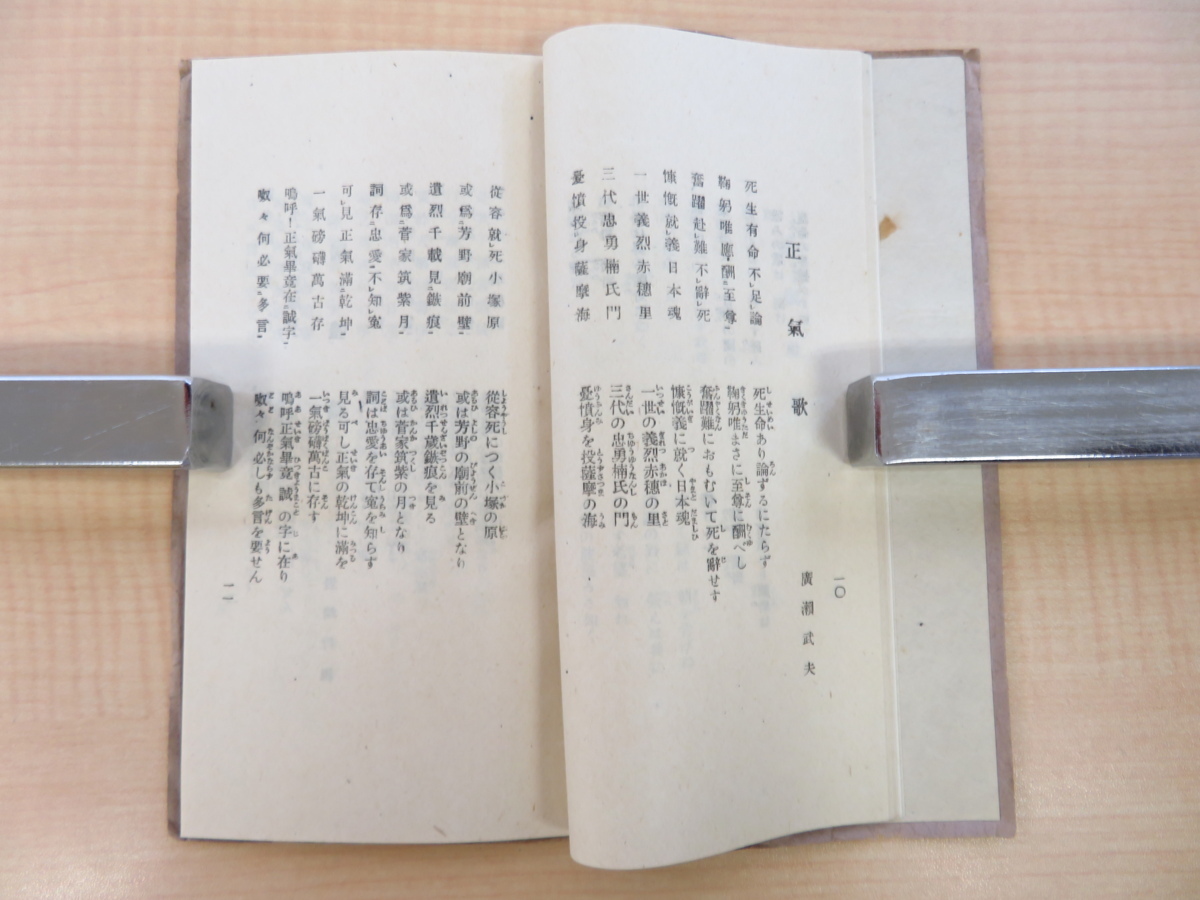 正氣歌
廣瀨武夫
死生有命不足論
鞠躬唯應酬至尊
奮躍赴難不辭死
慷慨就義日本魂
一世義烈赤穗里
三代忠勇楠氏門
憂憤投身薩摩海
死生命あり論ずるにたらず
鞠躬唯まさに至尊に酬べし
奮躍難におもむいて死を辭せず
慷慨義に就く日本魂
一世の義烈赤穗の里
三代の忠勇楠氏の門
憂憤身を投薩摩の海
一〇
從容就死小塚原
或爲芳野廟前壁
遺烈千載見鏃痕
或爲菅家筑紫月
詞存忠愛不知寃
可見正氣滿乾坤
一氣磅礴萬古存
嗚呼!正氣畢竟在誠字
呶々何必要多言
從容死につく小塚の原
或は芳野の廟前の壁となり
遺烈千歲鏃痕を見る
或は菅家筑紫の月となり
詞は忠愛を存て寃を知らず
見る可し正氣の乾坤に滿を
一氣磅礴萬古に存す
嗚呼正氣畢竟誠の字に在り
呶々何必しも多言を要せん
一一